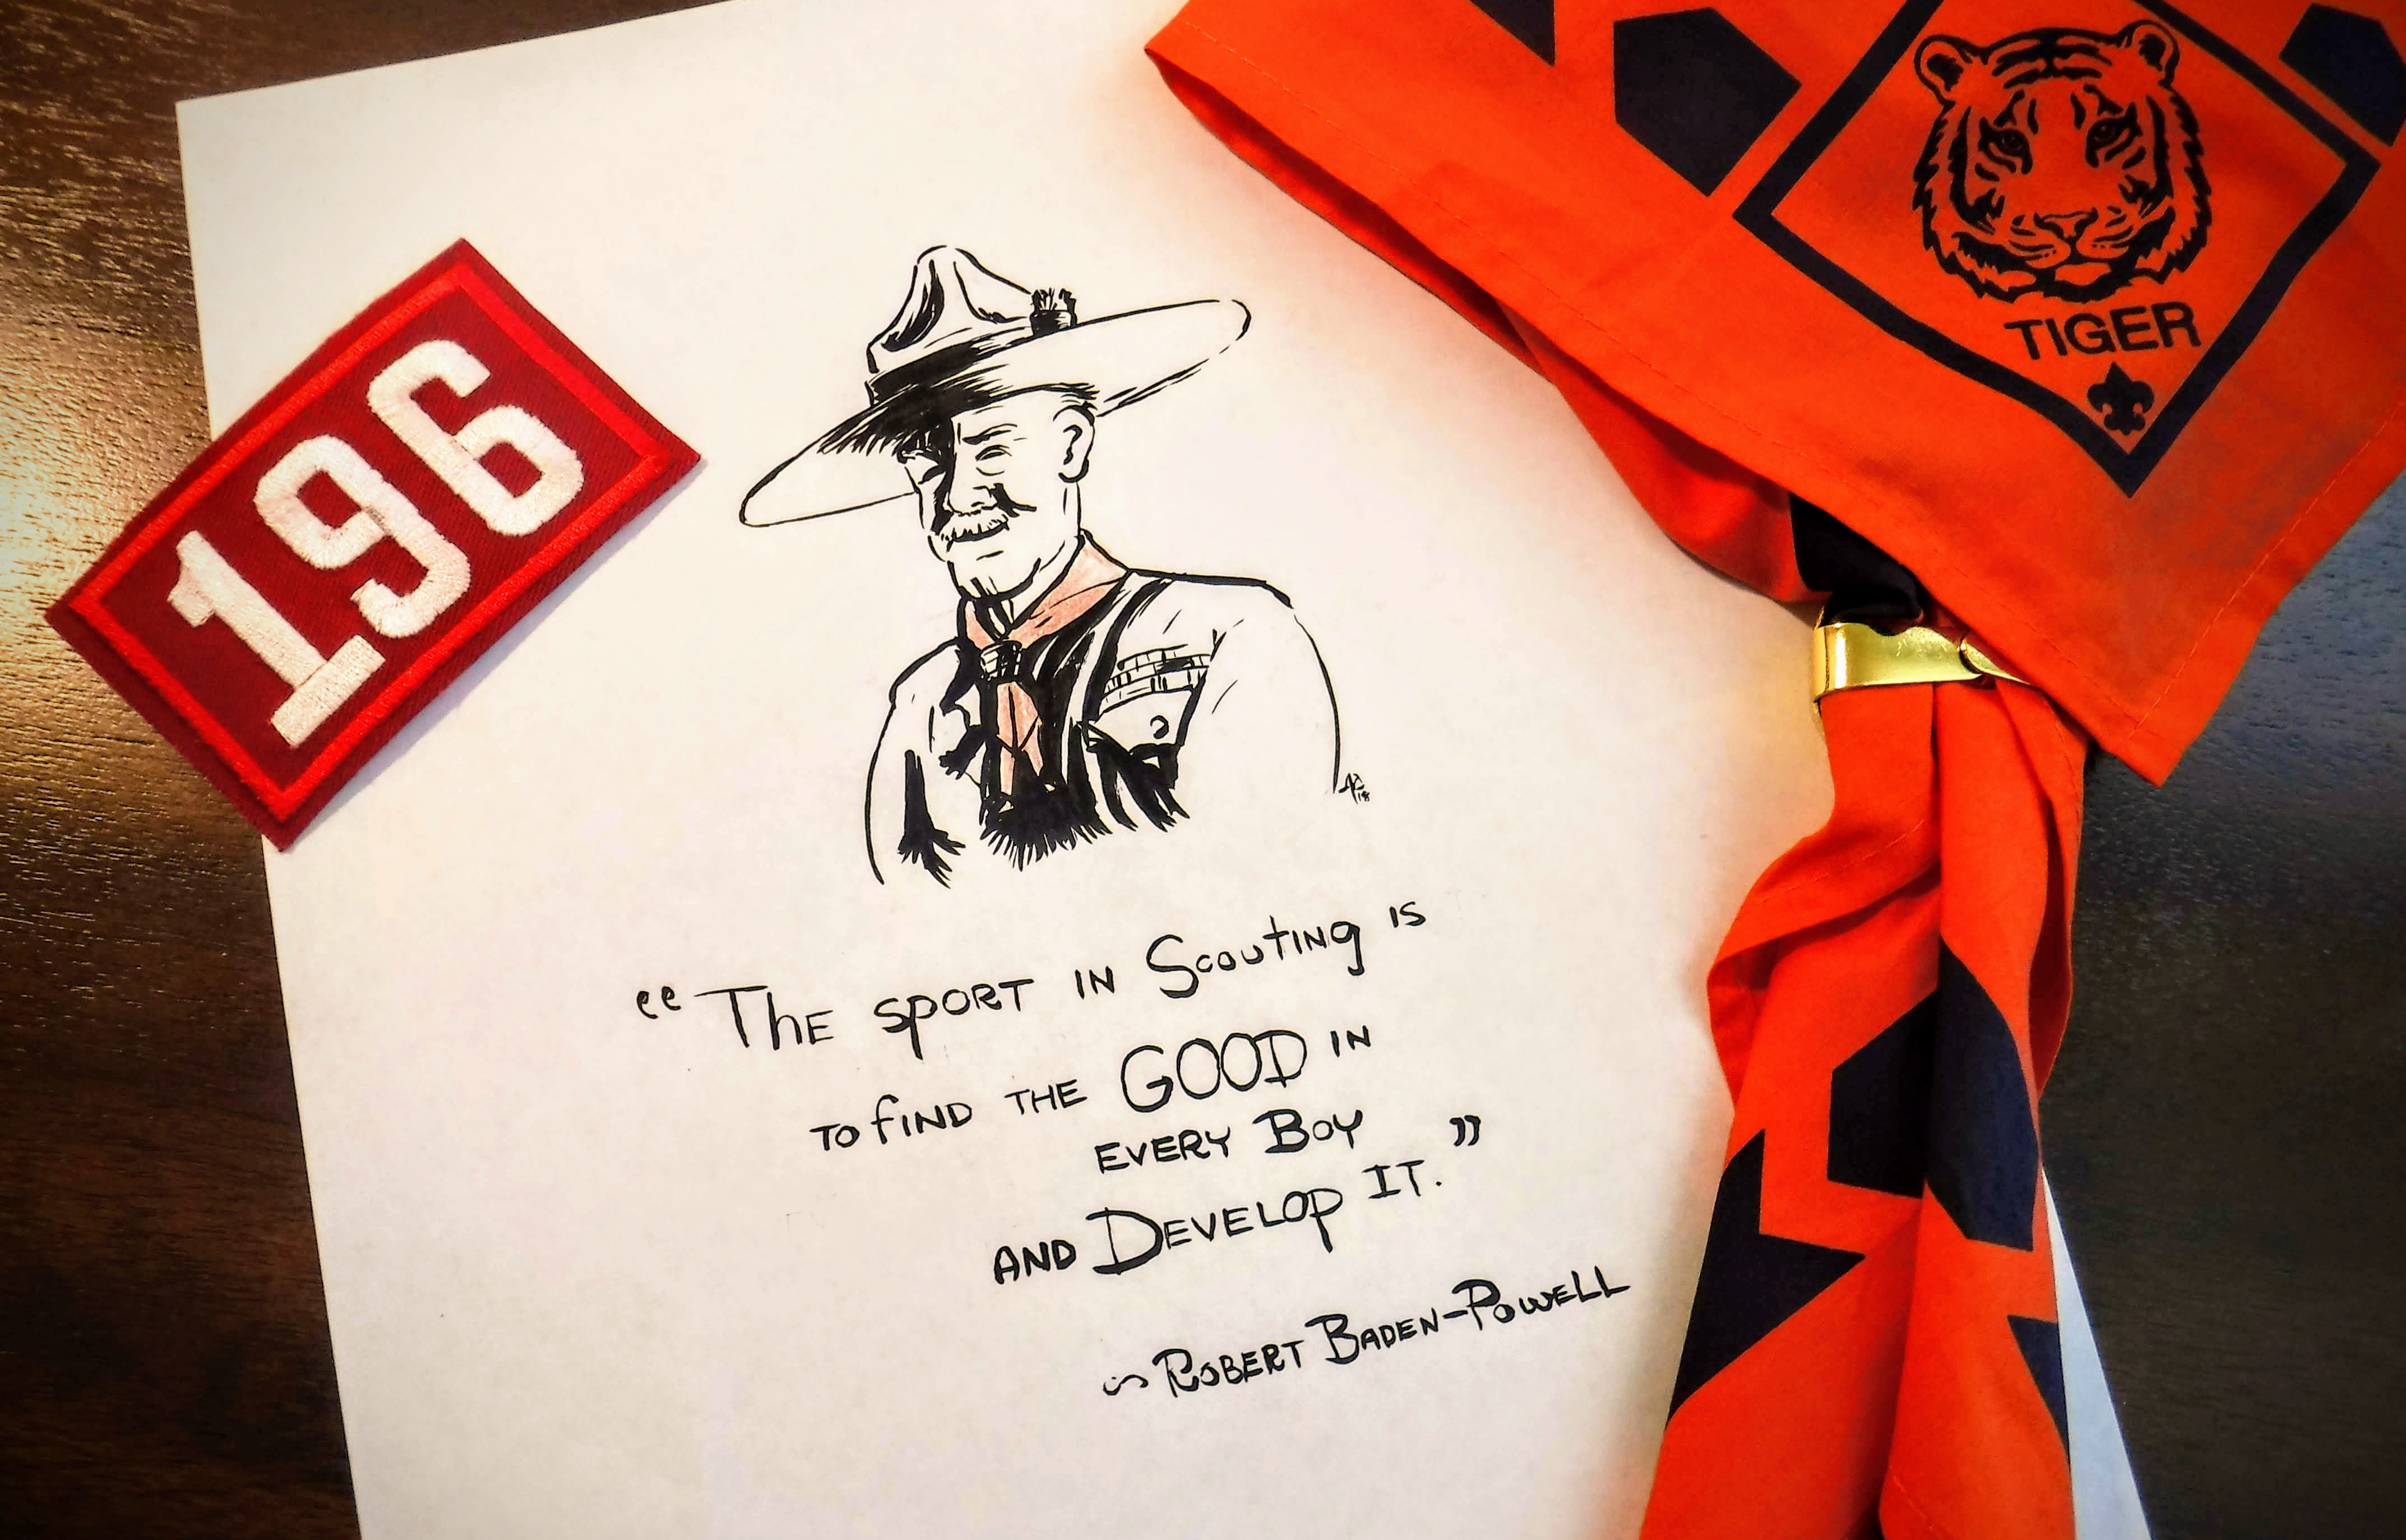 196
TIGER
“The sport in Scouting is
to find the GOOD in
every Boy
and Develop it.”
~ Robert Baden-Powell